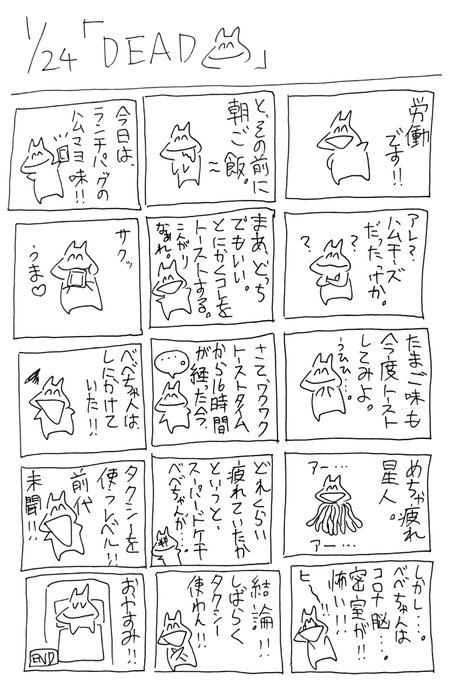 1/24「DEAD」
労働
です!!
と、その前に
朝ご飯。
今日は、
ランチパックの
ハムマヨ味!!
アレ?
ハムチーズ
だったっけか。
?
?
まあ、どっち
でもいい。
とにかくコレを
トーストする。
こんがり
なぁれ。
サクッ
うま♡
たまご味も
今度トースト
してみよ。
うひひ…。
さて、ワクワク
トーストタイム
から16時間
が経った今、
べべちゃんは
しにかけて
いた!!
めちゃ疲れ
星人。
アー…
アー…
どれくらい
疲れていたか
というと、
スーパードケチ
べべちゃんが…、
タクシーを
使うレベル!!
前代
未聞!!
しかし…。
べべちゃんは
コロナ脳…。
密室が
怖い!!
ヒー!!
結論!!
しばらく
タクシー
使わん!!
おやすみ!!
END